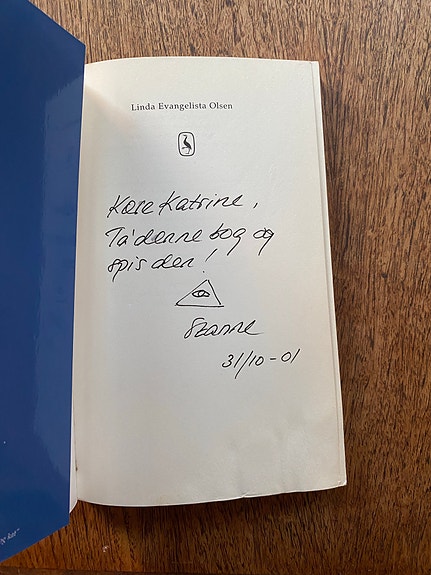 Linda Evangelista Olsen
Kære Katrine,
Ta' denne bog og
spis den!
Szanne
31/10-01